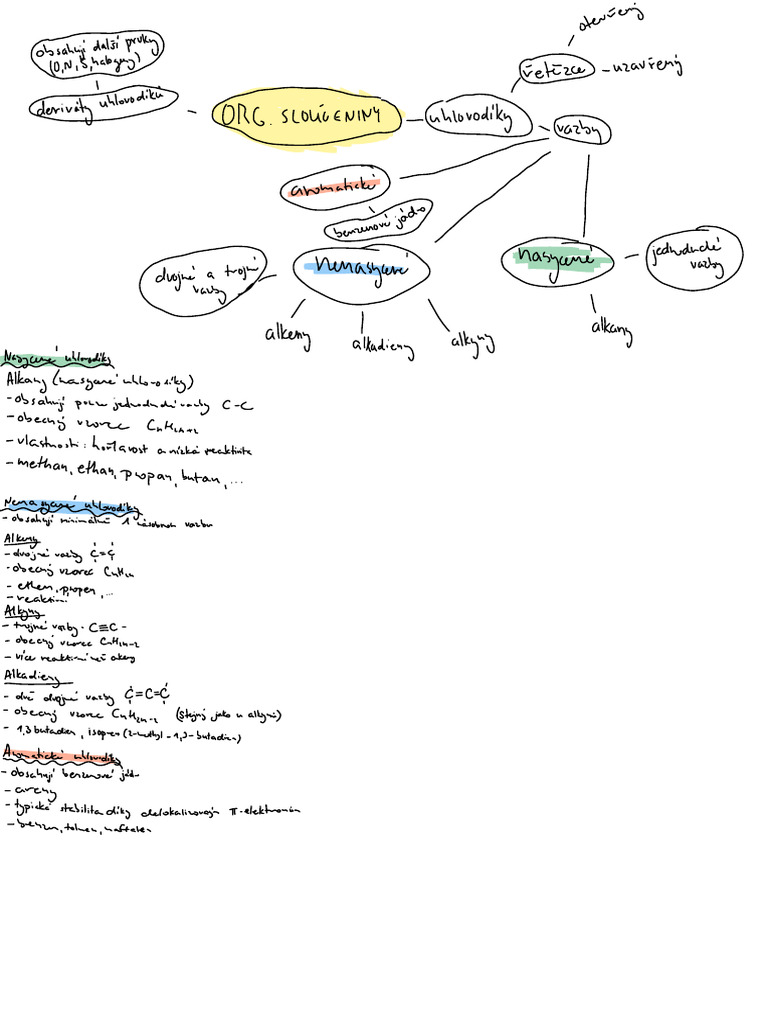 otevřený
obsahují další prvky
(O,N,S,halogeny)
řetězce - uzavřený
deriváty uhlovodíků - ORG. SLOUČENINY - uhlovodíky - vazby
aromatické
benzenové jádro
dvojné a trojné
vazby
nenasycené
nasycené - jednoduché
vazby
alkeny
alkadieny
alkyny
alkany
Nasycené uhlovodíky
Alkany (nasycené uhlovodíky)
- obsahují pouze jednoduché vazby C-C
- obecný vzorec CnH2n+2
- vlastnosti: hořlavost a nízká reaktivita
- methan, ethan, propan, butan, ...
Nenasycené uhlovodíky
- obsahují minimálně 1 násobnou vazbu
Alkeny
- dvojné vazby C=C
- obecný vzorec CnH2n
- ethen, propen, ...
- reaktivní
Alkyny
- trojné vazby - C≡C -
- obecný vzorec CnH2n-2
- více reaktivní než
Alkadieny
- dvě dvojné vazby C=C=C
- obecný vzorec CnH2n-2 (stejný jako u alkynů)
- 1,3 butadien, isopren (2-methyl-1,3-butadien)
Aromatické uhlovodíky
- obsahují benzenové jádro
- areny
- typická stabilita díky π-elektronům
- benzen, toluen, naftalen